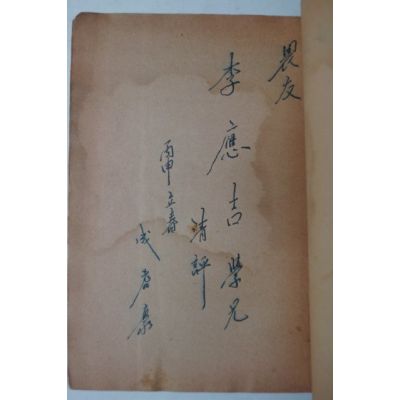 畏友
李應吉學兄
清評
丙申立春
成